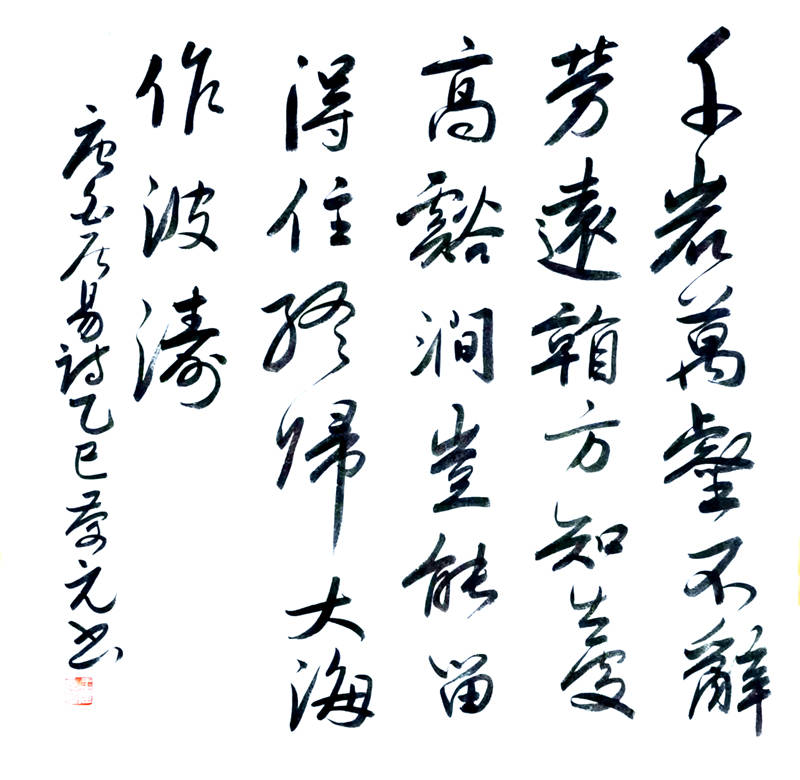 千岩萬壑不辭
劳遠看方知出處
高谿澗豈能留
得住終歸大海
作波濤
唐白居易詩乙巳元书